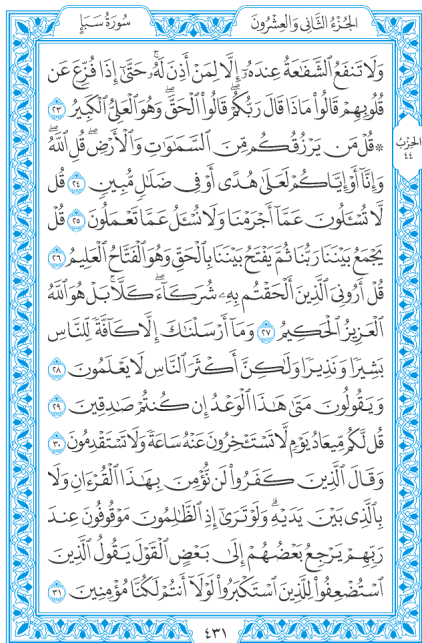 الجُزْءُ الثَّانِي وَالعِشْرُونَ
سُورَةُ سَبَإٍ
وَلَا تَنفَعُ ٱلشَّفَٰعَةُ عِندَهُۥٓ إِلَّا لِمَنۡ أَذِنَ لَهُۥۚ حَتَّىٰٓ إِذَا فُزِّعَ عَن
قُلُوبِهِمۡ قَالُواْ مَاذَا قَالَ رَبُّكُمۡۖ قَالُواْ ٱلۡحَقَّۖ وَهُوَ ٱلۡعَلِيُّ ٱلۡكَبِيرُ ٢٣
۞ قُلۡ مَن يَرۡزُقُكُم مِّنَ ٱلسَّمَٰوَٰتِ وَٱلۡأَرۡضِۖ قُلِ ٱللَّهُۖ
وَإِنَّآ أَوۡ إِيَّاكُمۡ لَعَلَىٰ هُدًى أَوۡ فِي ضَلَٰلٖ مُّبِينٖ ٢٤ قُل
لَّا تُسۡـَٔلُونَ عَمَّآ أَجۡرَمۡنَا وَلَا نُسۡـَٔلُ عَمَّا تَعۡمَلُونَ ٢٥ قُلۡ
يَجۡمَعُ بَيۡنَنَا رَبُّنَا ثُمَّ يَفۡتَحُ بَيۡنَنَا بِٱلۡحَقِّ وَهُوَ ٱلۡفَتَّاحُ ٱلۡعَلِيمُ ٢٦
قُلۡ أَرُونِيَ ٱلَّذِينَ أَلۡحَقۡتُم بِهِۦ شُرَكَآءَۖ كَلَّاۚ بَلۡ هُوَ ٱللَّهُ
ٱلۡعَزِيزُ ٱلۡحَكِيمُ ٢٧ وَمَآ أَرۡسَلۡنَٰكَ إِلَّا كَآفَّةٗ لِّلنَّاسِ
بَشِيرٗا وَنَذِيرٗا وَلَٰكِنَّ أَكۡثَرَ ٱلنَّاسِ لَا يَعۡلَمُونَ ٢٨
وَيَقُولُونَ مَتَىٰ هَٰذَا ٱلۡوَعۡدُ إِن كُنتُمۡ صَٰدِقِينَ ٢٩
قُل لَّكُم مِّيعَادُ يَوۡمٖ لَّا تَسۡتَـٔۡخِرُونَ عَنۡهُ سَاعَةٗ وَلَا تَسۡتَقۡدِمُونَ ٣٠
وَقَالَ ٱلَّذِينَ كَفَرُواْ لَن نُّؤۡمِنَ بِهَٰذَا ٱلۡقُرۡءَانِ وَلَا
بِٱلَّذِي بَيۡنَ يَدَيۡهِۗ وَلَوۡ تَرَىٰٓ إِذِ ٱلظَّٰلِمُونَ مَوۡقُوفُونَ عِندَ
رَبِّهِمۡ يَرۡجِعُ بَعۡضُهُمۡ إِلَىٰ بَعۡضٍ ٱلۡقَوۡلَ يَقُولُ ٱلَّذِينَ
ٱسۡتُضۡعِفُواْ لِلَّذِينَ ٱسۡتَكۡبَرُواْ لَوۡلَآ أَنتُمۡ لَكُنَّا مُؤۡمِنِينَ ٣١
الحِزْبُ
٤٤
٤٣١